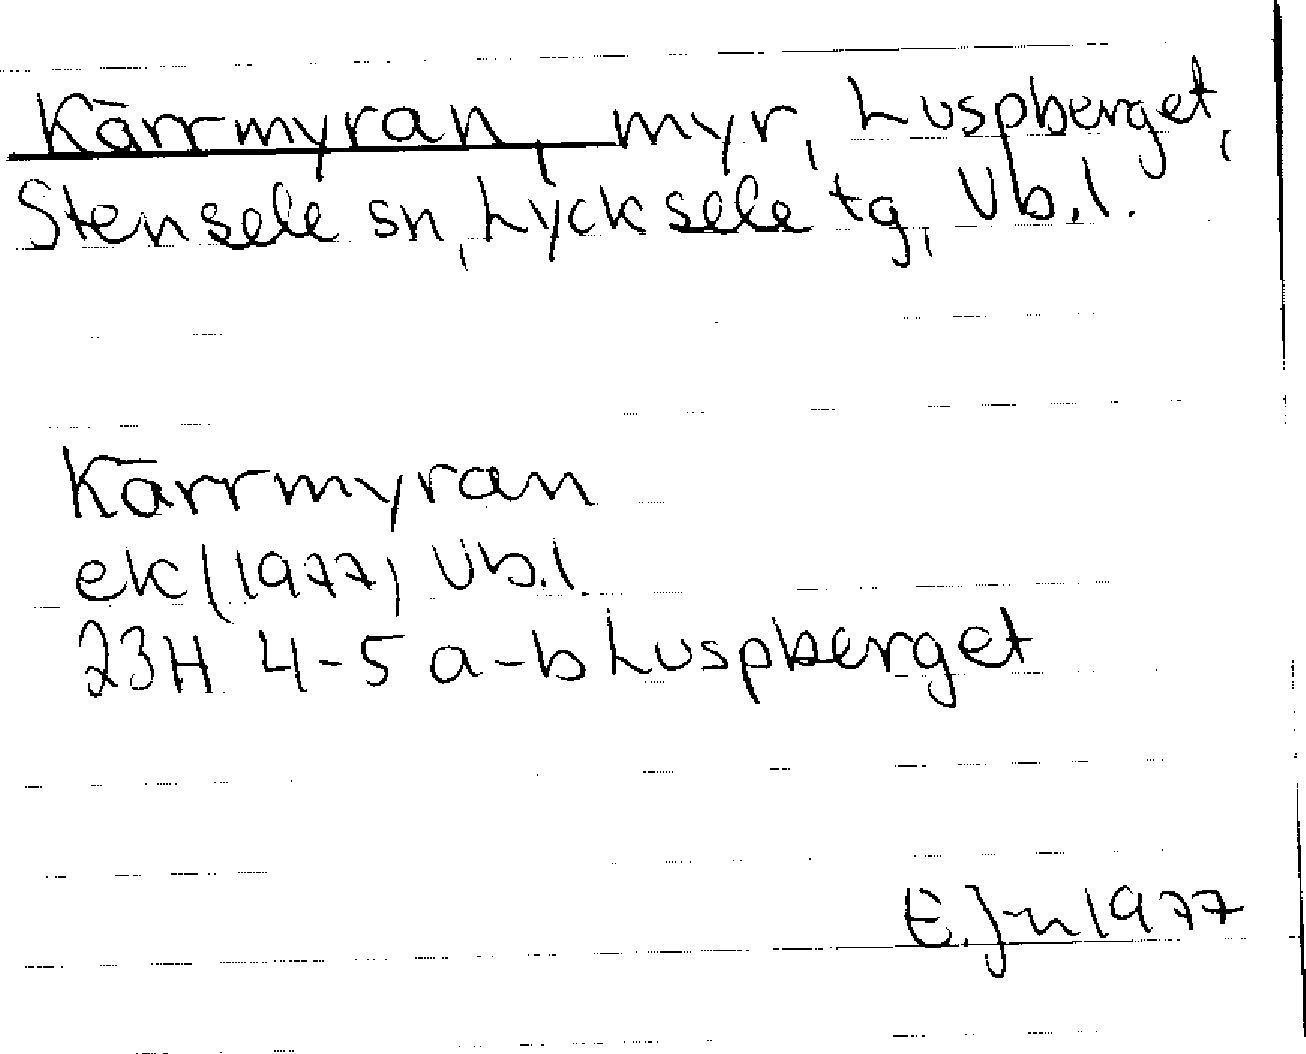 Kärrmyran, myr, Luspberget,
Stensele sn, Lycksele tg, Vb.l.
Kärrmyran
ek (1977) Vb.l.
23H 4-5 a-b Luspberget
E. Jn 1977